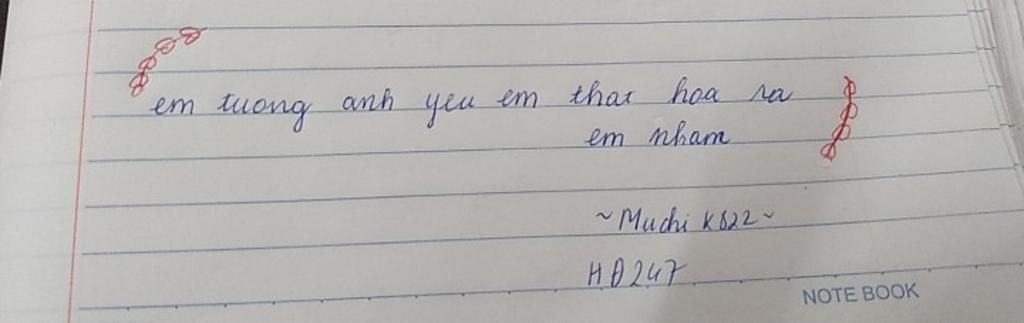 em tuong anh yeu em that hoa ra
em nham
~Muchi KS22~
HD247
NOTE BOOK